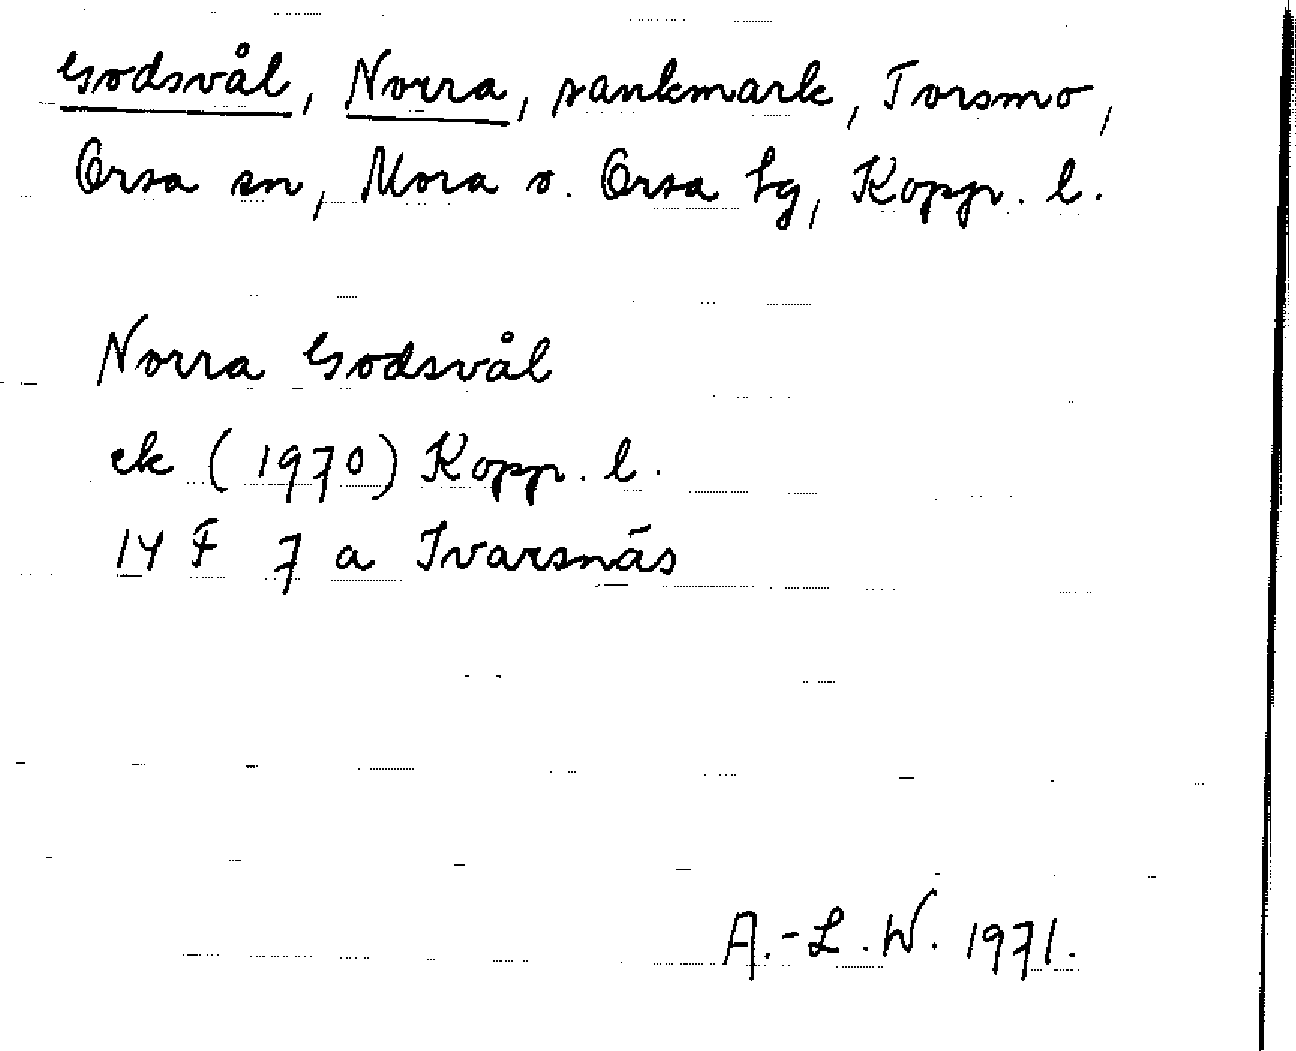 Godsvål, Norra, sankmark, Torsmo,
Orsa sn, Mora o. Orsa tg, Kopp. l.
Norra Godsvål
ek (1970) Kopp. l.
14 F 7 a Ivarsnäs
A.-L.W. 1971.